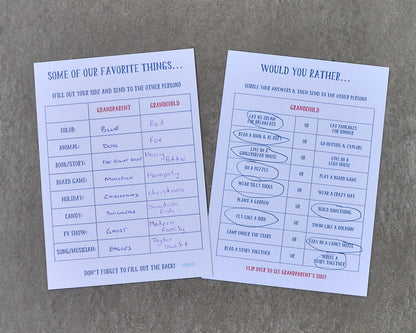 SOME OF OUR FAVORITE THINGS...
(FILL OUT YOUR SIDE AND SEND TO THE OTHER PERSON)
GRANDPARENT GRANDCHILD
COLOR: BLUE Red
ANIMAL: DOG Fox
BOOK/STORY: THE RIGHT STUFF Harry Potter
BOARD GAME: MONOPOLY Monopoly
HOLIDAY: CHRISTMAS Christmas
CANDY: SNICKERS Swedish Fish
TV SHOW: Modern Family
SONG/MUSICIAN: EAGLES Taylor Swift
DON'T FORGET TO FILL OUT THE BACK!
WOULD YOU RATHER...
(CIRCLE YOUR ANSWERS & THEN SEND TO THE OTHER PERSON)
GRANDCHILD
EAT ICE CREAM FOR BREAKFAST OR EAT PANCAKES FOR DINNER
READ A BOOK & BE COZY OR GO OUTSIDE & EXPLORE
LIVE IN A GINGERBREAD HOUSE OR LIVE IN A LEGO HOUSE
DO A PUZZLE OR PLAY A BOARD GAME
WEAR SILLY SOCKS OR WEAR A CRAZY HAT
PLANT A GARDEN OR BUILD SOMETHING
FLY LIKE A BIRD OR SWIM LIKE A DOLPHIN
CAMP UNDER THE STARS OR STAY IN A FANCY HOUSE
READ A STORY TOGETHER OR WRITE A STORY TOGETHER
FLIP OVER TO SEE GRANDPARENT'S SIDE!